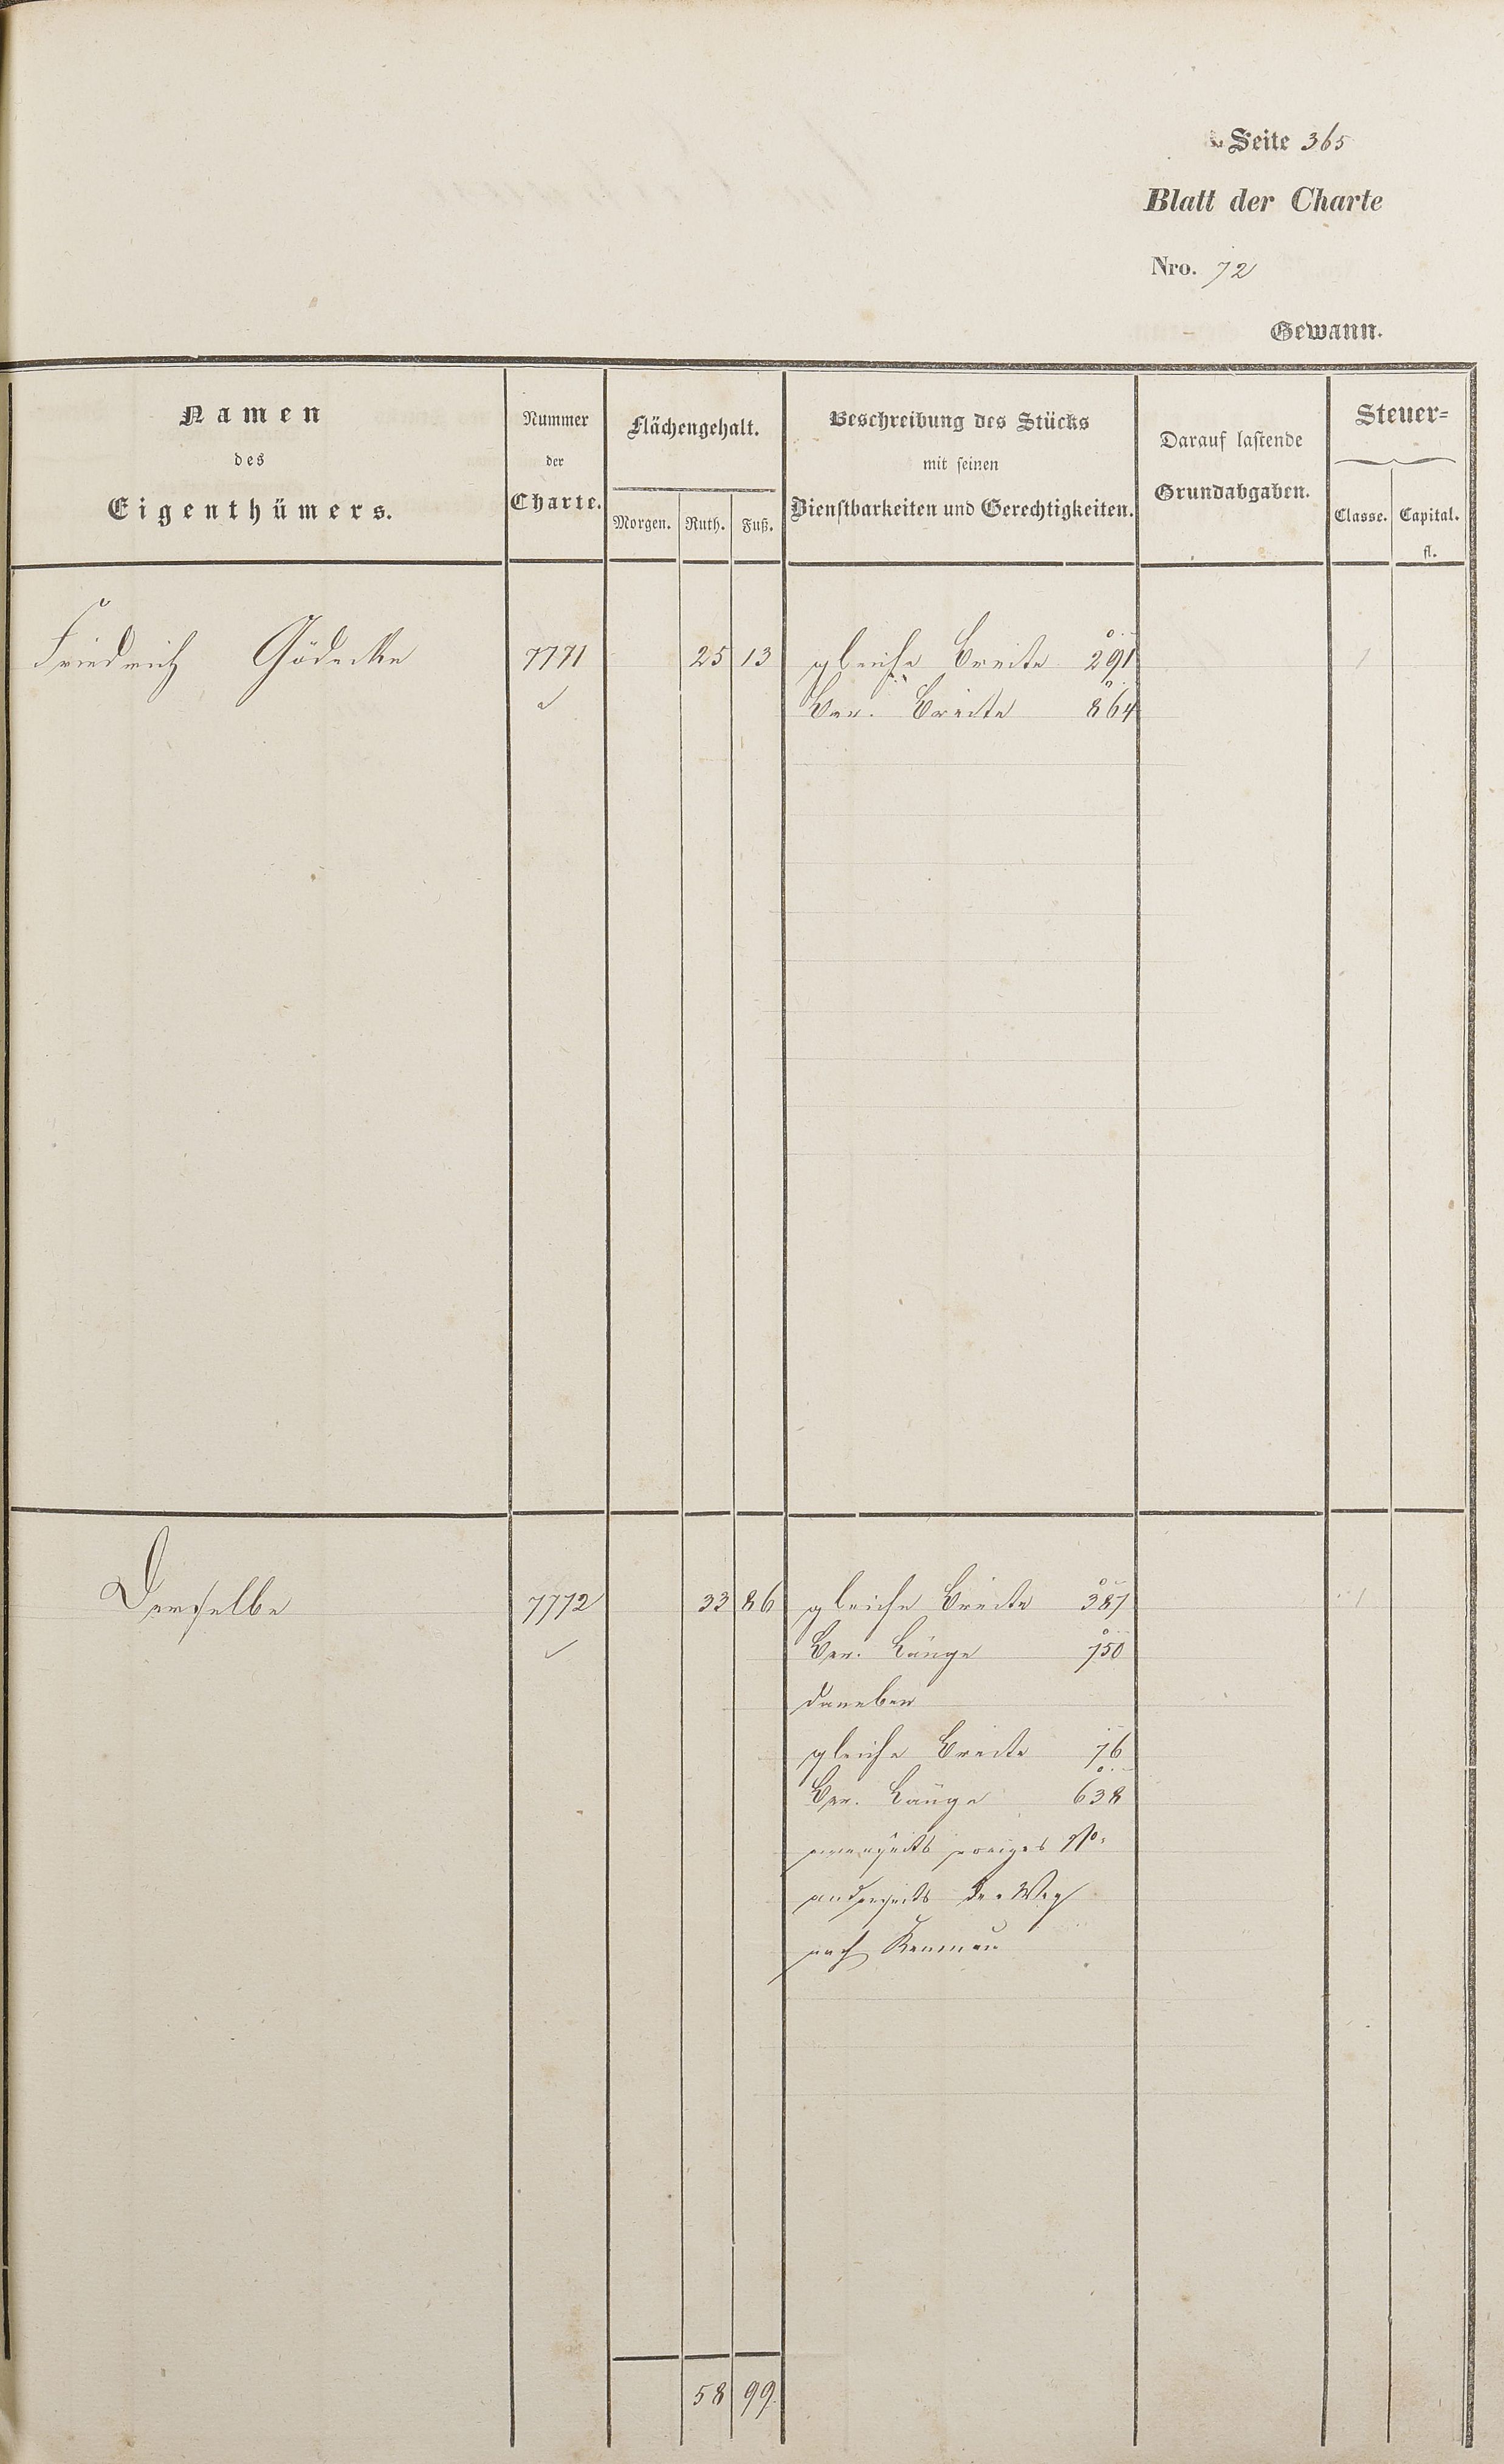 Seite 365
Blatt der Charte
Nro. 72
Gewann.
Namen
des
Eigenthümers.
Nummer
der
Charte.
Flächengehalt.
Morgen. Ruth. Fuß.
Beschreibung des Stücks
mit seinen
Dienstbarkeiten und Gerechtigkeiten.
Darauf lastende
Grundabgaben.
Steuer=
Classe. Capital.
fl.
Friedrich Gödecke 7771 25 13 gleiche Breite 291 1
Ver. Breite 864
Derselbe 7772 33 86 gleiche Breite 387 1
Ver. Länge 750
daneben
gleiche Breite 76
Ver. Länge 638
einerseits voriges No.
anderseits der Weg
nach
58 99